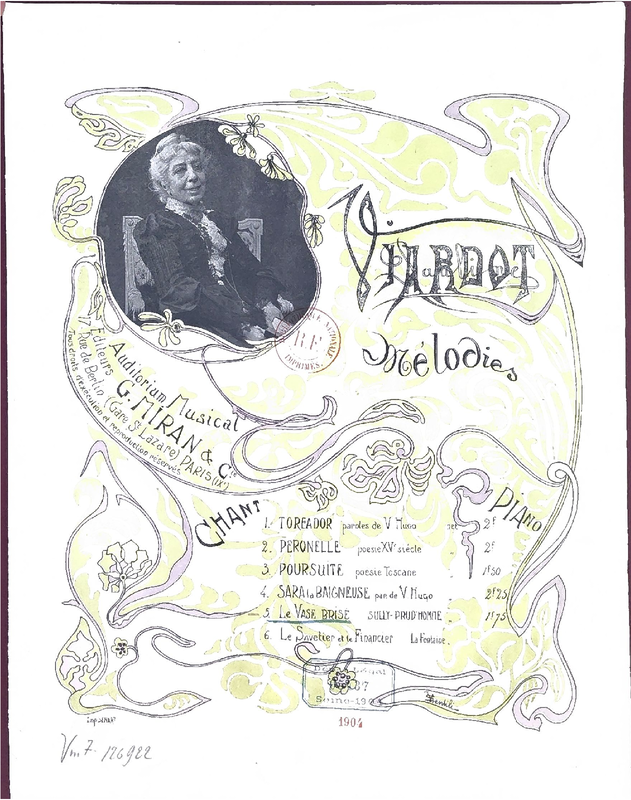 Pauline
VIARDOT
Mélodies
BIBLIOTHÈQUE NATIONALE
RF
IMPRIMÉS.
Auditorium Musical
G. MIRAN & Cie
Editeurs
17. Rue de Berlin (Gare St Lazare) PARIS (IX)
Tous droits d'exécution et reproduction réservés
CHANT
PIANO
1. TOREADOR paroles de V Hugo net 2f
2. PERONELLE poésie XVe siècle 2f
3. POURSUITE poésie Toscane 1f50
4. SARA la BAIGNEUSE par de V Hugo 2f25
5. Le VASE BRISE SULLY-PRUD'HOMME 1f75
6. Le Savetier et le Financier La Fontaine
Seine
1904
Vm 7. 126922